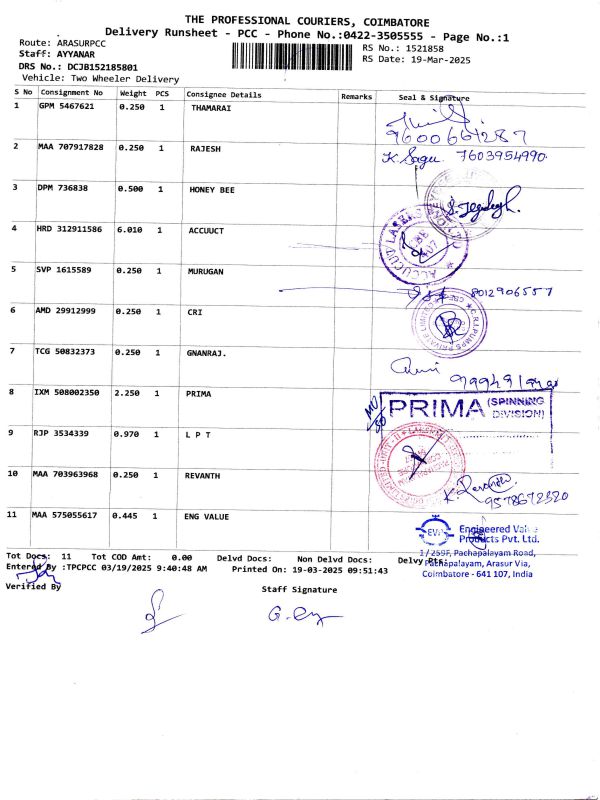 THE PROFESSIONAL COURIERS, COIMBATORE
Delivery Runsheet - PCC - Phone No.:0422-3505555 - Page No.:1
Route: ARASURPCC
RS No.: 1521858
Staff: AYYANAR
RS Date: 19-Mar-2025
DRS No.: DCJB152185801
Vehicle: Two Wheeler Delivery
S No Consignment No Weight PCS Consignee Details Remarks Seal & Signature
1 GPM 5467621 0.250 1 THAMARAI
9600661287
2 MAA 707917828 0.250 1 RAJESH K. Sagu 7603954990
3 DPM 736838 0.500 1 HONEY BEE
4 HRD 312911586 6.010 1 ACCUUCT
5 SVP 1615589 0.250 1 MURUGAN 8012906557
6 AMD 29912999 0.250 1 CRI
7 TCG 50832373 0.250 1 GNANRAJ.
8 IXM 508002350 2.250 1 PRIMA
PRIMA (SPINNING DIVISION)
9 RJP 3534339 0.970 1 L P T
10 MAA 703963968 0.250 1 REVANTH
9578672320
11 MAA 575055617 0.445 1 ENG VALUE
EVP Engineered Value Products Pvt. Ltd.
1/259F, Pachapalayam Road,
Pachapalayam, Arasur Via,
Coimbatore - 641 107, India
Tot Docs: 11 Tot COD Amt: 0.00 Delvd Docs: Non Delvd Docs: Delvy Pts:
Entered By :TPCPCC 03/19/2025 9:40:48 AM Printed On: 19-03-2025 09:51:43
Verified By
Staff Signature